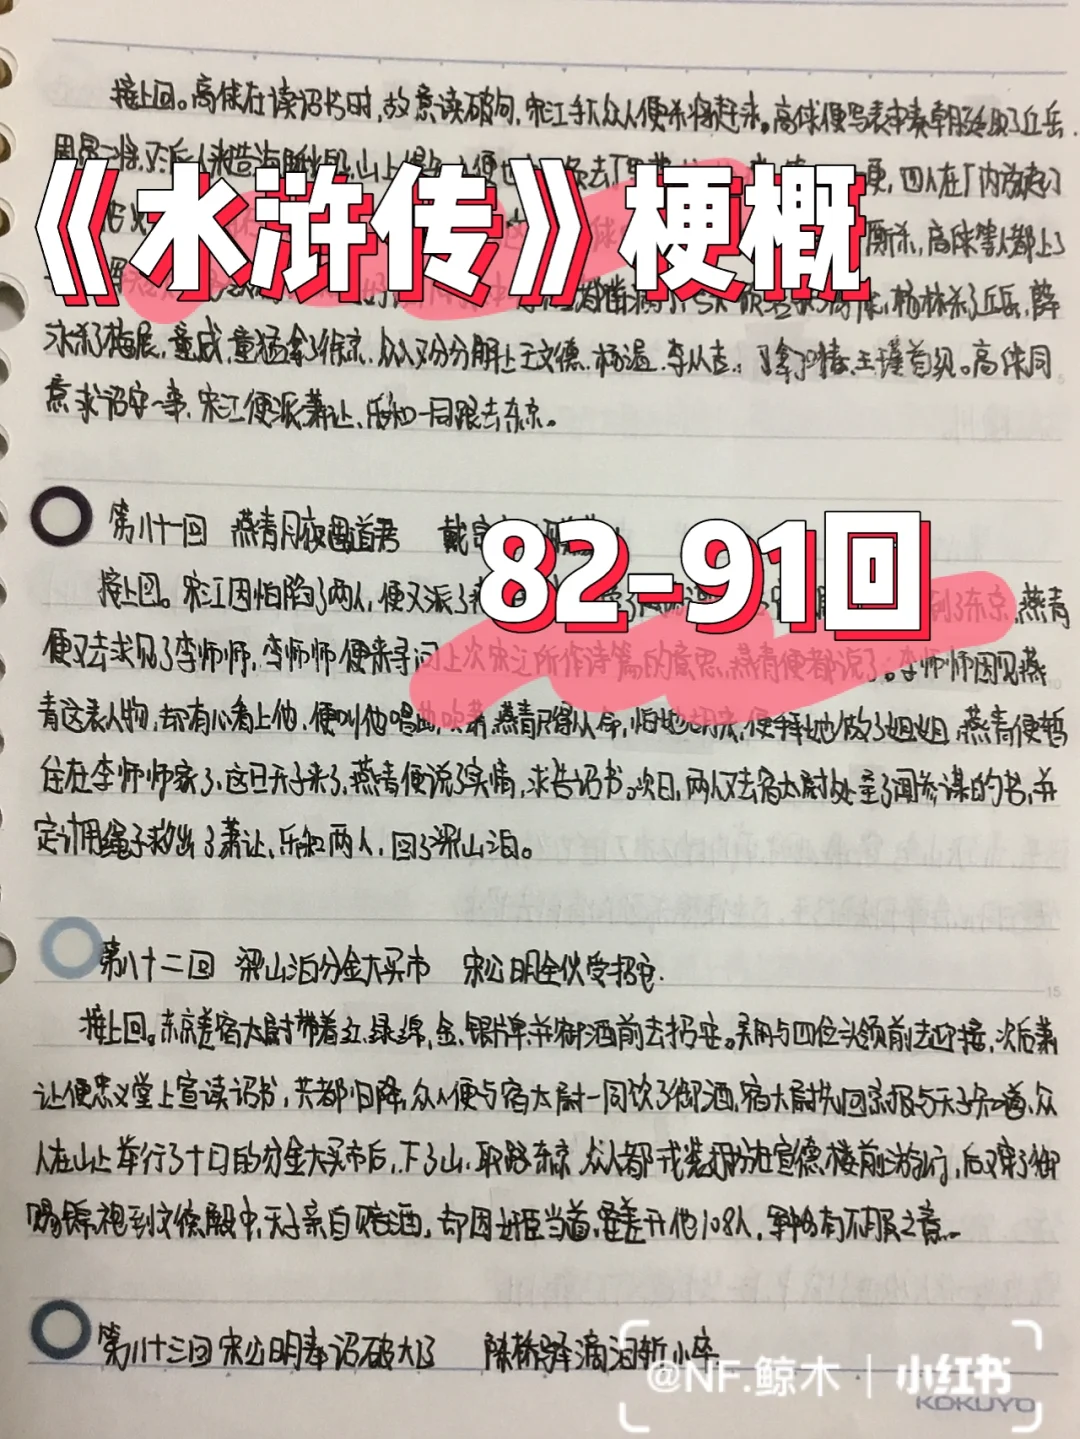 接上回。高俅在读诏书时,故意读破句,宋江手下众人便杀将起来。高俅便写表申奏朝廷取了丘岳
便,四人在厂内放起了
《水浒传》梗概
厮杀,高俅等人都上了
杨林杀了丘岳,薛
永杀了梅展,童威、童猛拿了徐京,众人又分分解上王文德、杨温、李从吉、王瑾首级。高俅同
意求诏安一事,宋江便派萧让、乐和一同跟去东京。
第八十一回 燕青月夜遇道君 戴宗
82-91回
接上回。宋江因怕陷了两人,便又派了 到了东京,燕青
便又去求见了李师师,李师师便来寻问上次宋江所作诗篇的意思,燕青便都说了。李师师因见燕
青这表人物,却有心看上他,便叫他唱曲,吹萧,燕青只得从命,怕她胡来,便拜她做了姐姐,燕青便暂
住在李师师家了,这日天子来了,燕青便说了实情,求告诏书。次日,两人又去宿太尉处呈了闻参谋的书,并
定计用绳子救出了萧让、乐和两人,回了梁山泊。
第八十二回 梁山泊分金大买市 宋公明全伙受招安.
接上回。东京差宿太尉带着红、绿绵,金、银牌,并御酒前去招安。吴用与四位头领前去迎接,次后萧
让便忠义堂上宣读诏书,共都归降,众人便与宿太尉一同饮了御酒,宿太尉先回京报与天子知道,众
人在山上举行了十日的分金大买市后,下了山,取路东京,众人都戎装打扮在宣德楼前游行,后又穿了御
赐锦袍到文德殿中,天子亲自赐酒,却因奸臣当道,要差开他108人,军中多有不服之意。
第八十三回 宋公明奉诏破大辽 陈桥驿滴泪斩小卒
@NF.鲸木 | 小红书
KOKUYO